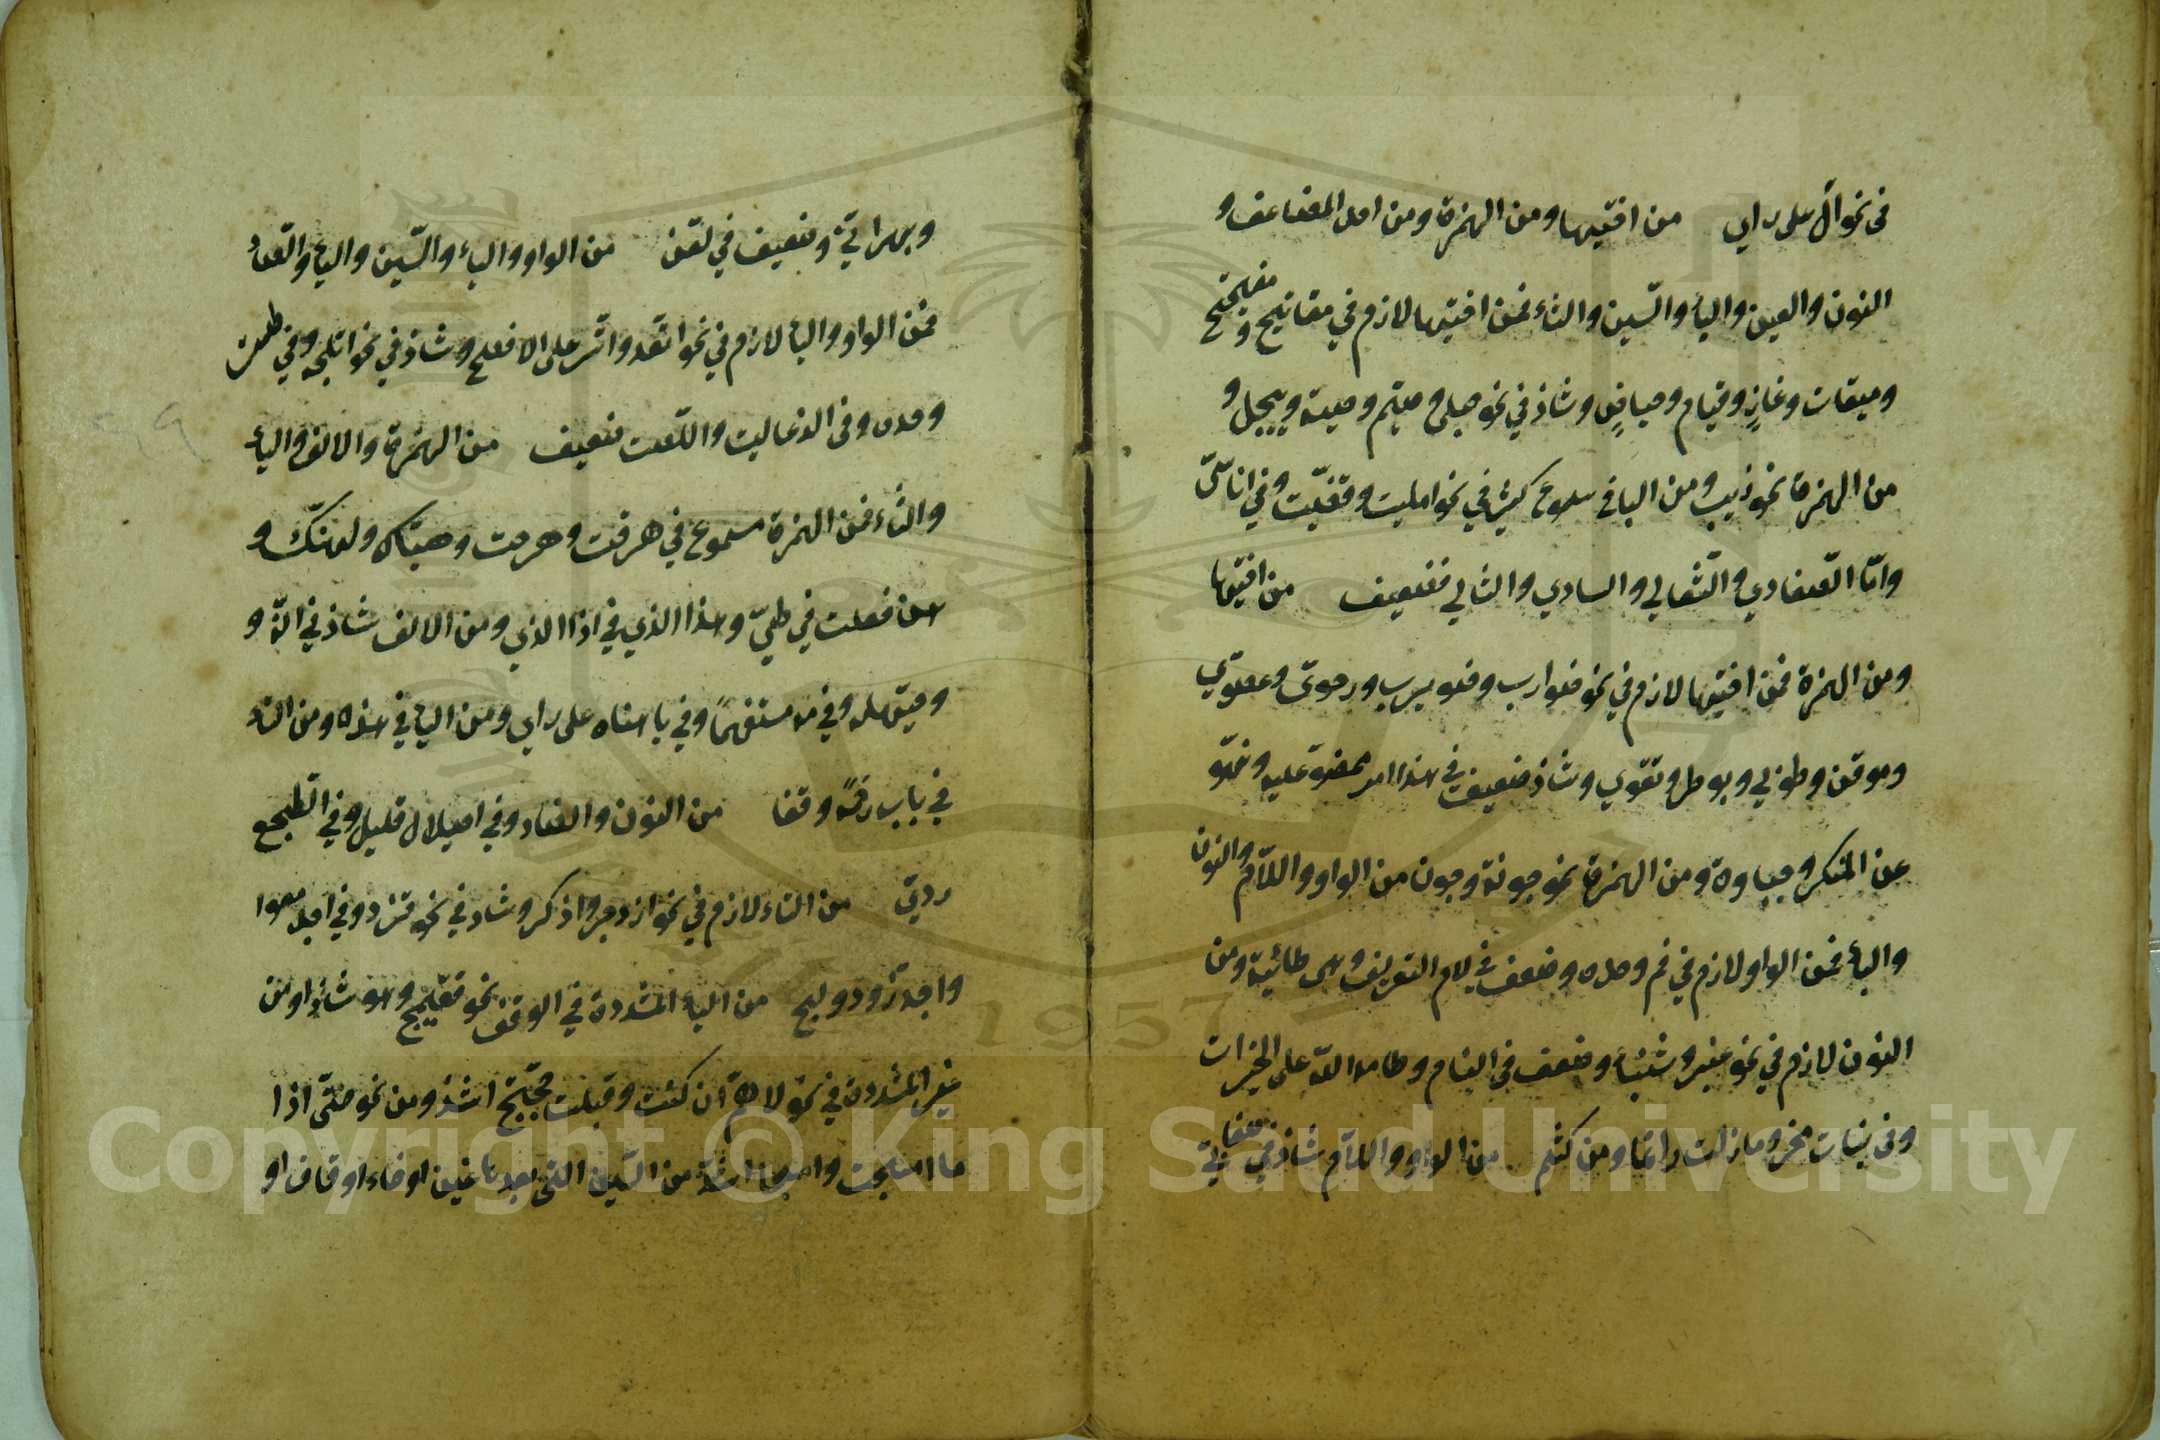 فى نحو آل على راي من اختيها ومن الهمزة ومن احد المضاعف و
النون والعين والباء والسين والثاء فمن اختيها لازم في مفاتيح ومفيتيح
وميقات وغاز وقيام وحياض وشاذ في نحو حبلى وصيم وصبية وييجل و
من الهمزة نحو ذيب ومن الباقي مسموع كثير في نحو امليت وقصيت وفي اناسي
واما الضفادي والثعالي والسادي والثالي فضعيف من اختيها
ومن الهمزة فمن اختيها لازم في نحو ضوارب وضويرب ورحوي وعصوي
وموقن وطوبى وبوطر وتقوى وشاذ ضعيف في هذا امر ممضو عليه ونهو
عن المنكر وجباوة ومن الهمزة نحو جونة وجون من الواو واللام والنون
والباء فمن الواو لازم في فم وحده وضعف في لام التعريف وهى طائية ومن
النون لازم في نحو عنبر وشنباء وضعف فى البنام وطامه الله على الخير ات
وفى بنات مخر وما زلت راتما ومن كثم من الواو واللام شاذ في صنعاني
وبهراني وضعيف في لعن من الواو والياء والسين والباء والصاد
فمن الواو والياء لازم في نحو اتعد واتسر على الافصح وشاذ في نحو اتلجه وفي طست
وحده وفى الذعالت واللصت ضعيف من الهمزة والالف والياء
والتاء فمن الهمزة مسموع في هرقت وهرحت وهياك ولهنك و
هن فعلت في طيّ وهذا الذي في اذا الذي ومن الالف شاذ في انه و
وحيهله وفي مه مستفهما وفي يا هناه على راي ومن الياء في هذه ومن التاء
في باب رحمة وقفا من النون والضاد وفي اصيلال قليل وفي الطجع
ردي من التاء لازم في نحو ازدجر واذكر وشاذ في نحو فزد وفي اجدمعوا
واجدز ودولج من الياء المشددة في الوقف نحو فقيمج وهو شاذ ومن
غير المشددة في نحو لا هم ان كنت قبلت حجتج اشذ ومن نحو حتى اذا
ما امسجت وامسجا اشذ من السين التي بعدها غين او خاء او قاف او